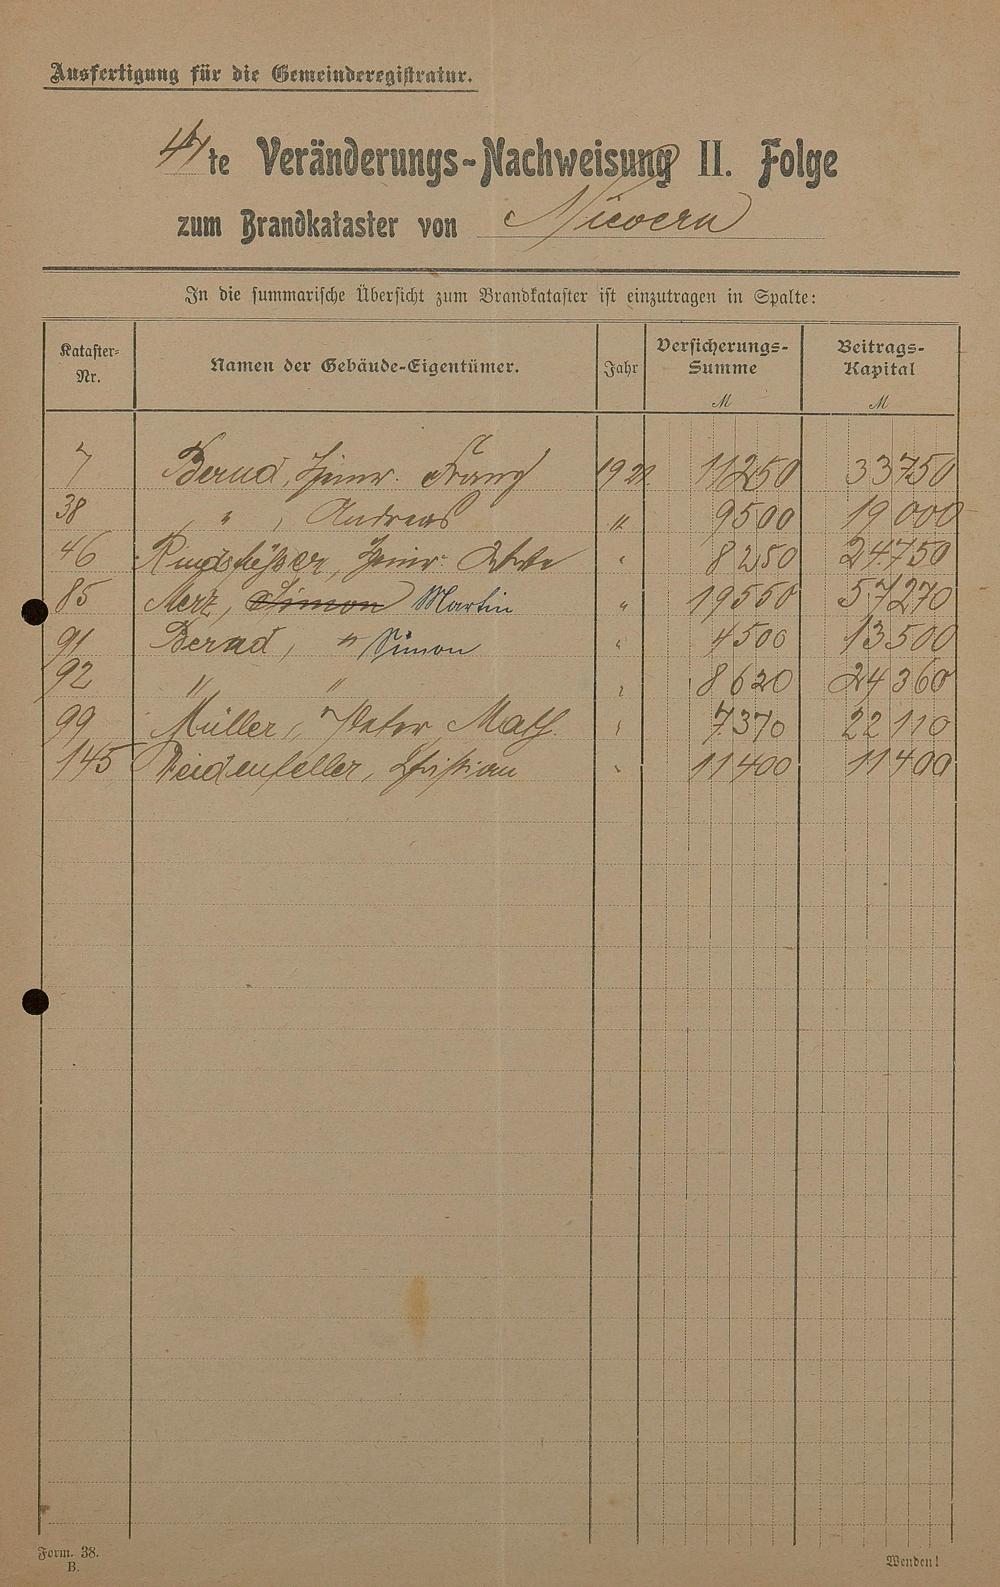 Ausfertigung für die Gemeinderegistratur.
te Veränderungs-Nachweisung II. Folge
zum Brandkataster von Nievern
In die summarische Übersicht zum Brandkataster ist einzutragen in Spalte:
Kataster-Nr. Namen der Gebäude-Eigentümer. Jahr Versicherungs-Summe M Beitrags-Kapital M
7 Bernd, Heinr. Franz 1921 11250 33750
38 " , Andreas " 9500 19000
46 Heinr. " 8250 24750
85 Merz, Simon Martin " 19550 57270
91 Bernd, " Simon " 4500 13500
92 " " " 8620 24360
99 Müller, Peter Math. " 7370 22110
145 Weidenfeller, Christian " 11400 11400
Form. 38.
B.
Wenden!